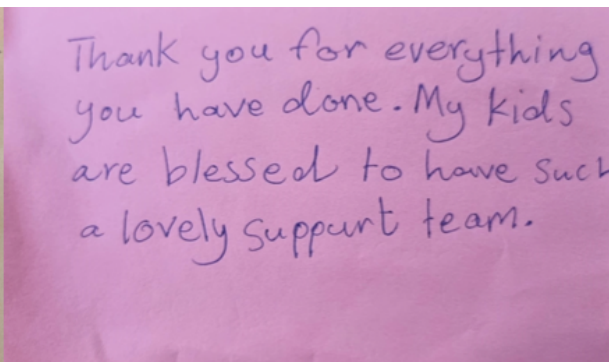 Thank you for everything
you have done. My kids
are blessed to have such
a lovely suppurt team.